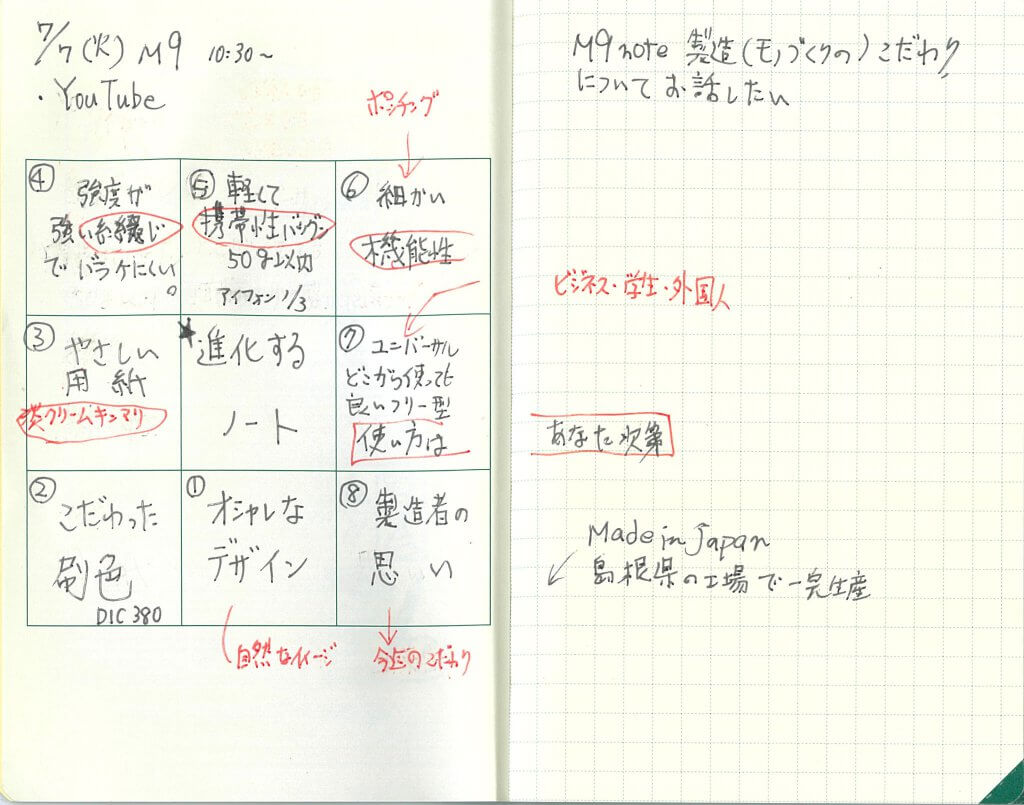 7/7(火) M9 10:30~
・YouTube
ポッチング
④ 強度が
強い糸綴じ
でバラケにくい。
⑤ 軽して
携帯性バツグン
50g以内
アイフォン 1/3
⑥ 細かい
機能性
③ やさしい
用紙
淡クリームキンマリ
★進化する
ノート
⑦ ユニバーサル
どこから使っても
良いフリー型
使い方は
② こだわった
刷色
DIC 380
① オシャレな
デザイン
⑧ 製造者の
思い
自然なイメージ
のこだわり
M9 note 製造(モノづくりの)こだわり
についてお話したい
ビジネス・学生・外国人
あなた次第
Made in Japan
島根県の工場で一完生産